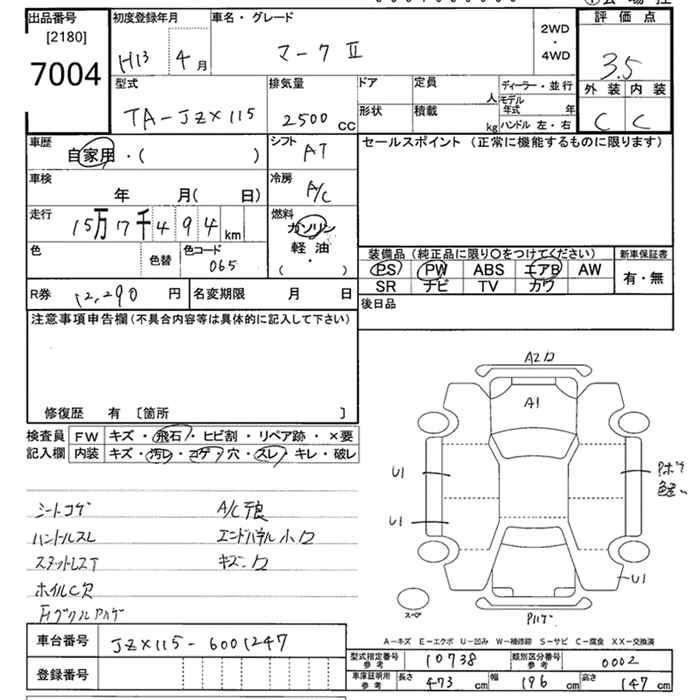 出品番号 [2180] 7004
初度登録年月 H13 年 4月
車名・グレード マークⅡ
2WD・4WD
評価点 3.5
型式 TA-JZX115
排気量 2500 CC
ドア
定員 人
ディーラー・並行
形状
積載 kg
モデル年式 年
ハンドル 左・右
外装 内装
C C
車歴 自家用・( )
シフト AT
セールスポイント (正常に機能するものに限ります)
車検 年 月( 日)
冷房 A/C
走行 15万17千494km
燃料 ガソリン 軽油 ( ・ )
色
色替
色コード 065
装備品(純正品に限り○をつけてください)
新車保証書
PS PW ABS エアB AW
有・無
SR ナビ TV カワ
R券 12,290 円
名変期限 月 日
後日品
注意事項申告欄(不具合内容等は具体的に記入して下さい)
修復歴 有 〔箇所 〕
検査員記入欄
FW キズ・飛石・ヒビ割・リペア跡・×要
内装 キズ・汚レ・コゲ・穴・スレ・キレ・破レ
シートコゲ
A/C不良
ハンドルスレ
エンドパネル小ロ
キズ・ロ
ホイルC欠
A2ロ
A1
U1
U1
U1
スペア
A-キズ E-エクボ U-凹み W-補修跡 S-サビ C-腐食 XX-交換済
車台番号 JZX115-6001247
登録番号
型式指定番号 参考 10738
類別区分番号 参考 0002
車庫証明用 参考 長さ 473 cm 幅 176 cm 高さ 147 cm